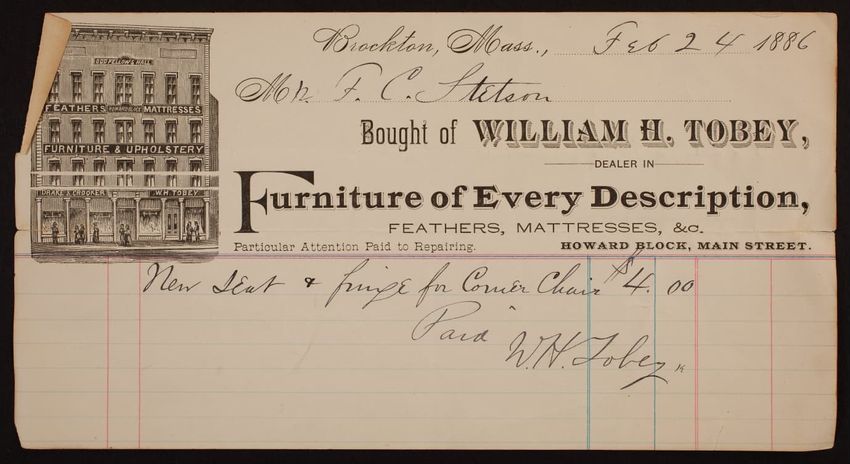 ODD FELLOWS HALL
FEATHERS HOWARD BLOCK MATTRESSES
FURNITURE & UPHOLSTERY
DRAKE & CROOKER W.H. TOBEY
Brockton, Mass., Feb 24 1886
Mr. F. C. Stetson
Bought of WILLIAM H. TOBEY,
DEALER IN
Furniture of Every Description,
FEATHERS, MATTRESSES, &c.
Particular Attention Paid to Repairing. HOWARD BLOCK, MAIN STREET.
New Seat & fringe for Corner Chair $4.00
Paid
W.H. Tobey